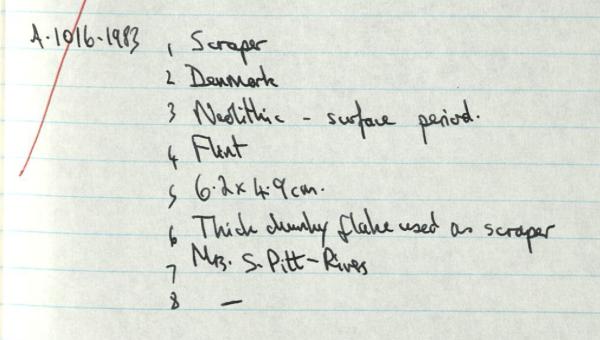 A·1016·1983 1 Scraper
2 Denmark
3 Neolithic - surface period.
4 Flint
5 6·2 x 4·9 cm.
6 Thick chunky flake used as scraper
7 Mrs. S. Pitt-Rivers
8 —